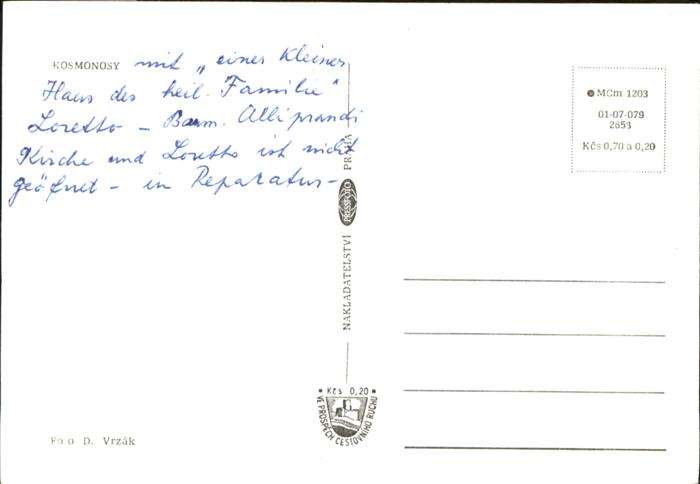 KOSMONOSY mit „eines kleines
Haus des heil. Familie"
Loretto - Baum. Alliprandi
Kirche und Loretto ist nicht
geöfnet - in Reparatur -
MCm 1203
01-07-079
2653
Kčs 0,70 a 0,20
NAKLADATELSTVÍ PRESSFOTO PRAHA
• Kčs 0,20 •
VE PROSPĚCH CESTOVNÍHO RUCHU
Fo o D. Vrzák